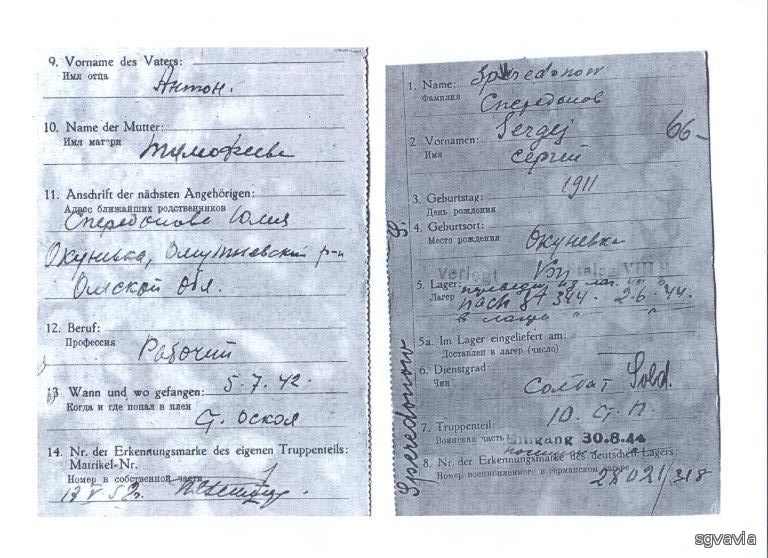 9. Vorname des Vaters:
Имя отца
Антон.
10. Name der Mutter:
Имя матери
Тимофеева
11. Anschrift der nächsten Angehörigen:
Адрес ближайших родственников
Спередонова Юлия
Окунивка, Омутневский р-н
Омской обл.
12. Beruf:
Профессия
Рабочий
13 Wann und wo gefangen: 5.7.42.
Когда и где попал в плен
Ст. Оскол
14. Nr. der Erkennungsmarke des eigenen Truppenteils:
Matrikel-Nr.
Номер в собственной части
1. Name: Speredonow
Фамилия
Спередонов
2 Vornamen: Sergej 66-
Имя
Сергей
3. Geburtstag: 1911
День рождения
4. Geburtsort:
Место рождения
Окуневка
Verlegt Von Stalag VIII B
5. Lager:
Лагерь
nach 344 2.6.44.
в лагерь
5a. Im Lager eingeliefert am:
Доставлен в лагерь (число)
6. Dienstgrad
Чин
солдат Sold.
7. Truppenteil: 10. с.п.
Воинская часть Eingang 30.8.44
8. Nr. der Erkennungsmarke des deutschen Lagers:
Номер военнопленного в германском лагере
28021/318
Speredonow
sgvavia